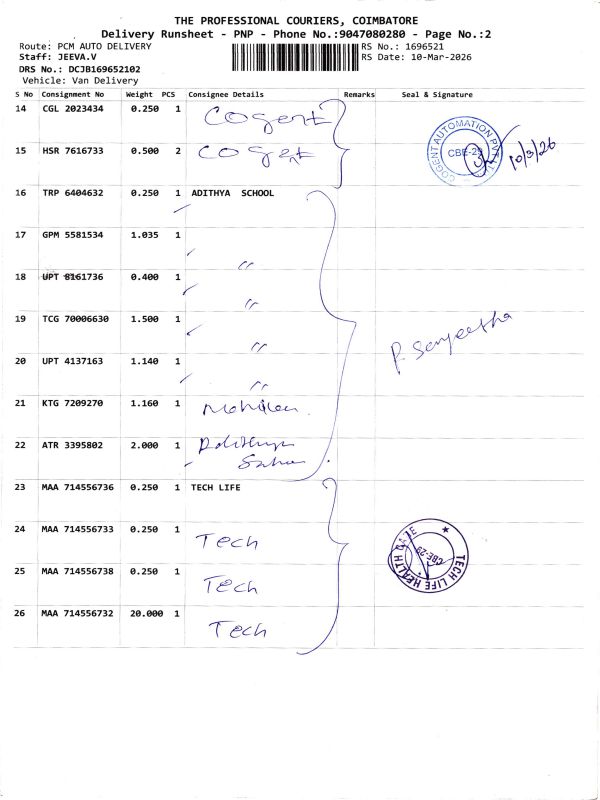 THE PROFESSIONAL COURIERS, COIMBATORE
Delivery Runsheet - PNP - Phone No.:9047080280 - Page No.:2
Route: PCM AUTO DELIVERY
Staff: JEEVA.V
DRS No.: DCJB169652102
Vehicle: Van Delivery
RS No.: 1696521
RS Date: 10-Mar-2026
S No Consignment No Weight PCS Consignee Details Remarks Seal & Signature
14 CGL 2023434 0.250 1 Cogent
15 HSR 7616733 0.500 2 Cogent
COGENT AUTOMATION PVT
CBE-29
10/3/26
16 TRP 6404632 0.250 1 ADITHYA SCHOOL
17 GPM 5581534 1.035 1 "
18 UPT 8161736 0.400 1 "
19 TCG 70006630 1.500 1 "
20 UPT 4137163 1.140 1 "
P. Sangeetha
21 KTG 7209270 1.160 1
22 ATR 3395802 2.000 1
23 MAA 714556736 0.250 1 TECH LIFE
24 MAA 714556733 0.250 1 Tech
25 MAA 714556738 0.250 1 Tech
26 MAA 714556732 20.000 1 Tech
TECH LIFE HEALTH
CBE-28